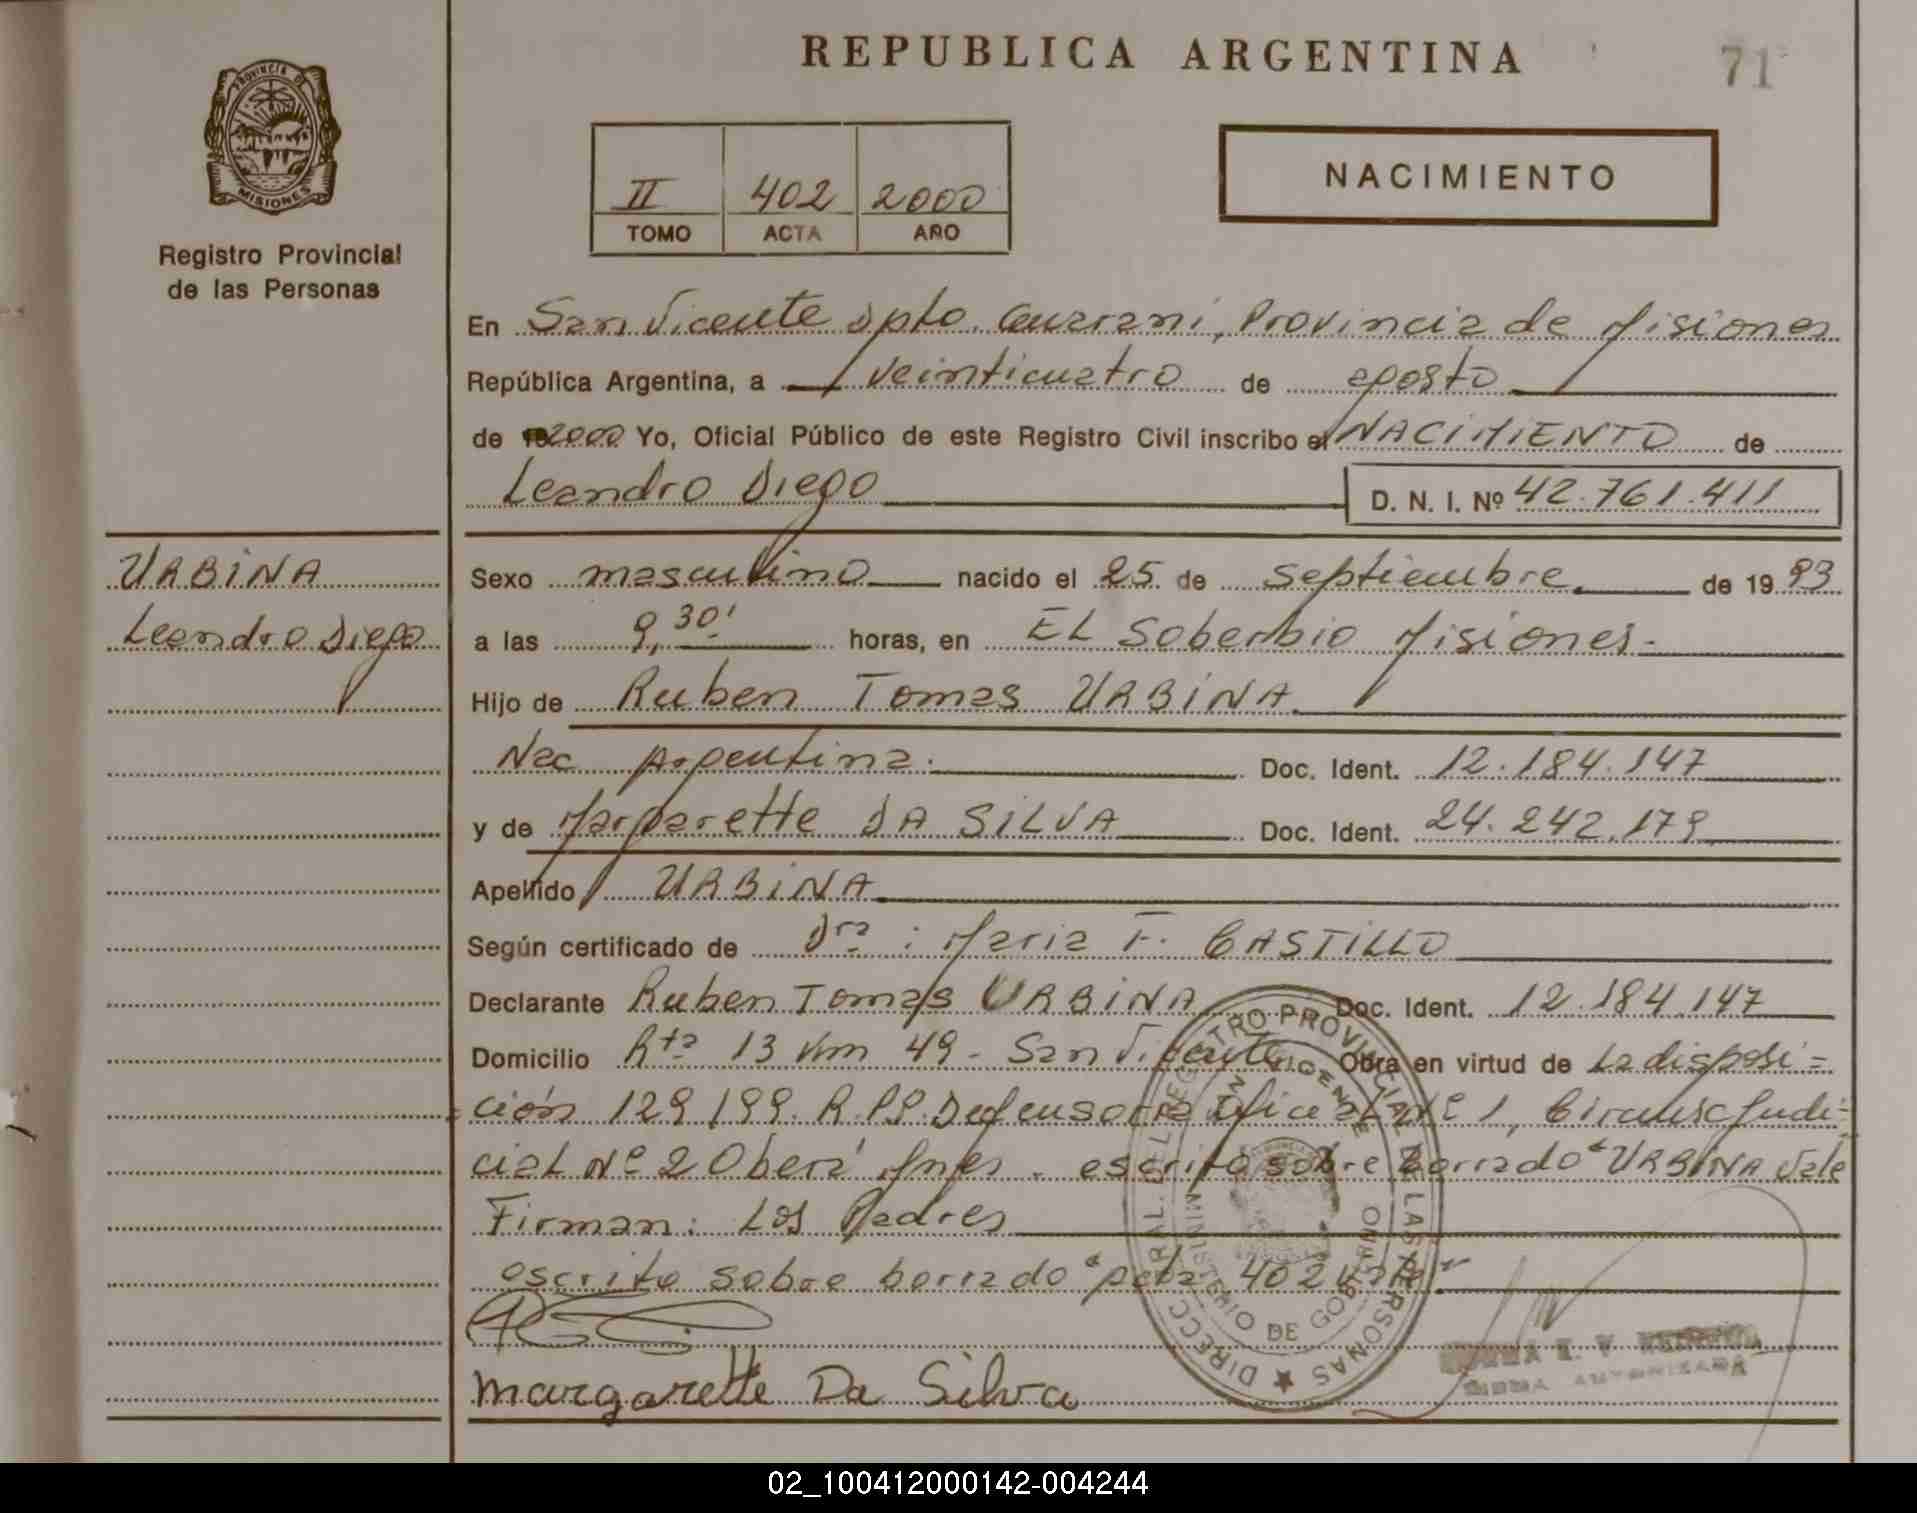 REPUBLICA ARGENTINA
71
PROVINCIA DE
MISIONES
Registro Provincial
de las Personas
II 402 2000
TOMO ACTA AÑO
NACIMIENTO
En San Vicente Dpto. Guarani, Provincia de Misiones
República Argentina, a veinticuatro de agosto
de 2000 Yo, Oficial Público de este Registro Civil inscribo el NACIMIENTO de
Leandro Diego D. N. I. Nº 42.761.411
URBINA
Leandro Diego
Sexo masculino nacido el 25 de septiembre de 1993
a las 9,30' horas, en EL Soberbio Misiones.-
Hijo de Ruben Tomas URBINA
Nac Argentina. Doc. Ident. 12.184.147
y de Margarette DA SILVA Doc. Ident. 24.242.179
Apellido URBINA
Según certificado de Dra : Maria F. CASTILLO
Declarante Ruben Tomas URBINA Doc. Ident. 12.184.147
Domicilio Rta 13 Km 49 - San Vicente Obra en virtud de La disposi=
=ción 129/99. R.P.P. Defensoria Oficial Nº 1, Circunsc Judi=
cial Nº 2 Oberá Mnes. escrito sobre borrado "URBINA Vale
Firman: Los Padres
escrito sobre borrado "acta 402 vale"
Margarette Da Silva
DIRECC. GRAL. DEL REGISTRO PROVINCIAL DE LAS PERSONAS
SAN VICENTE
MINISTERIO DE GOBIERNO
FIRMA AUTORIZADA
02_100412000142-004244